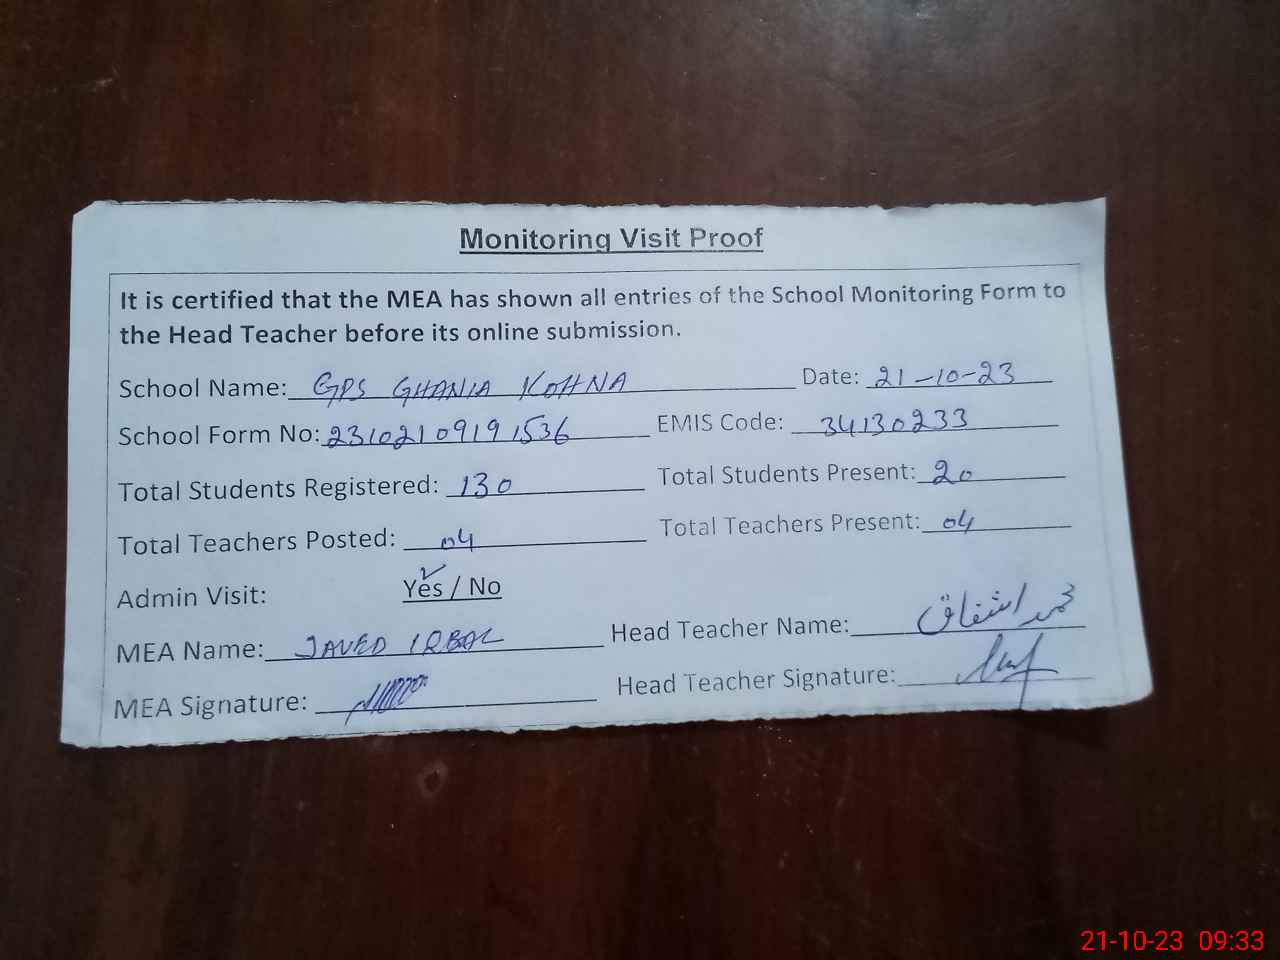 Monitoring Visit Proof
It is certified that the MEA has shown all entries of the School Monitoring Form to
the Head Teacher before its online submission.
School Name: GPS GHANIA KOHNA Date: 21-10-23
School Form No: 23102109191536 EMIS Code: 34130233
Total Students Registered: 130 Total Students Present: 20
Total Teachers Posted: 04 Total Teachers Present: 04
Admin Visit: Yes / No
MEA Name: JAVED IQBAL Head Teacher Name: محمد اشفاق
MEA Signature: Head Teacher Signature:
21-10-23 09:33